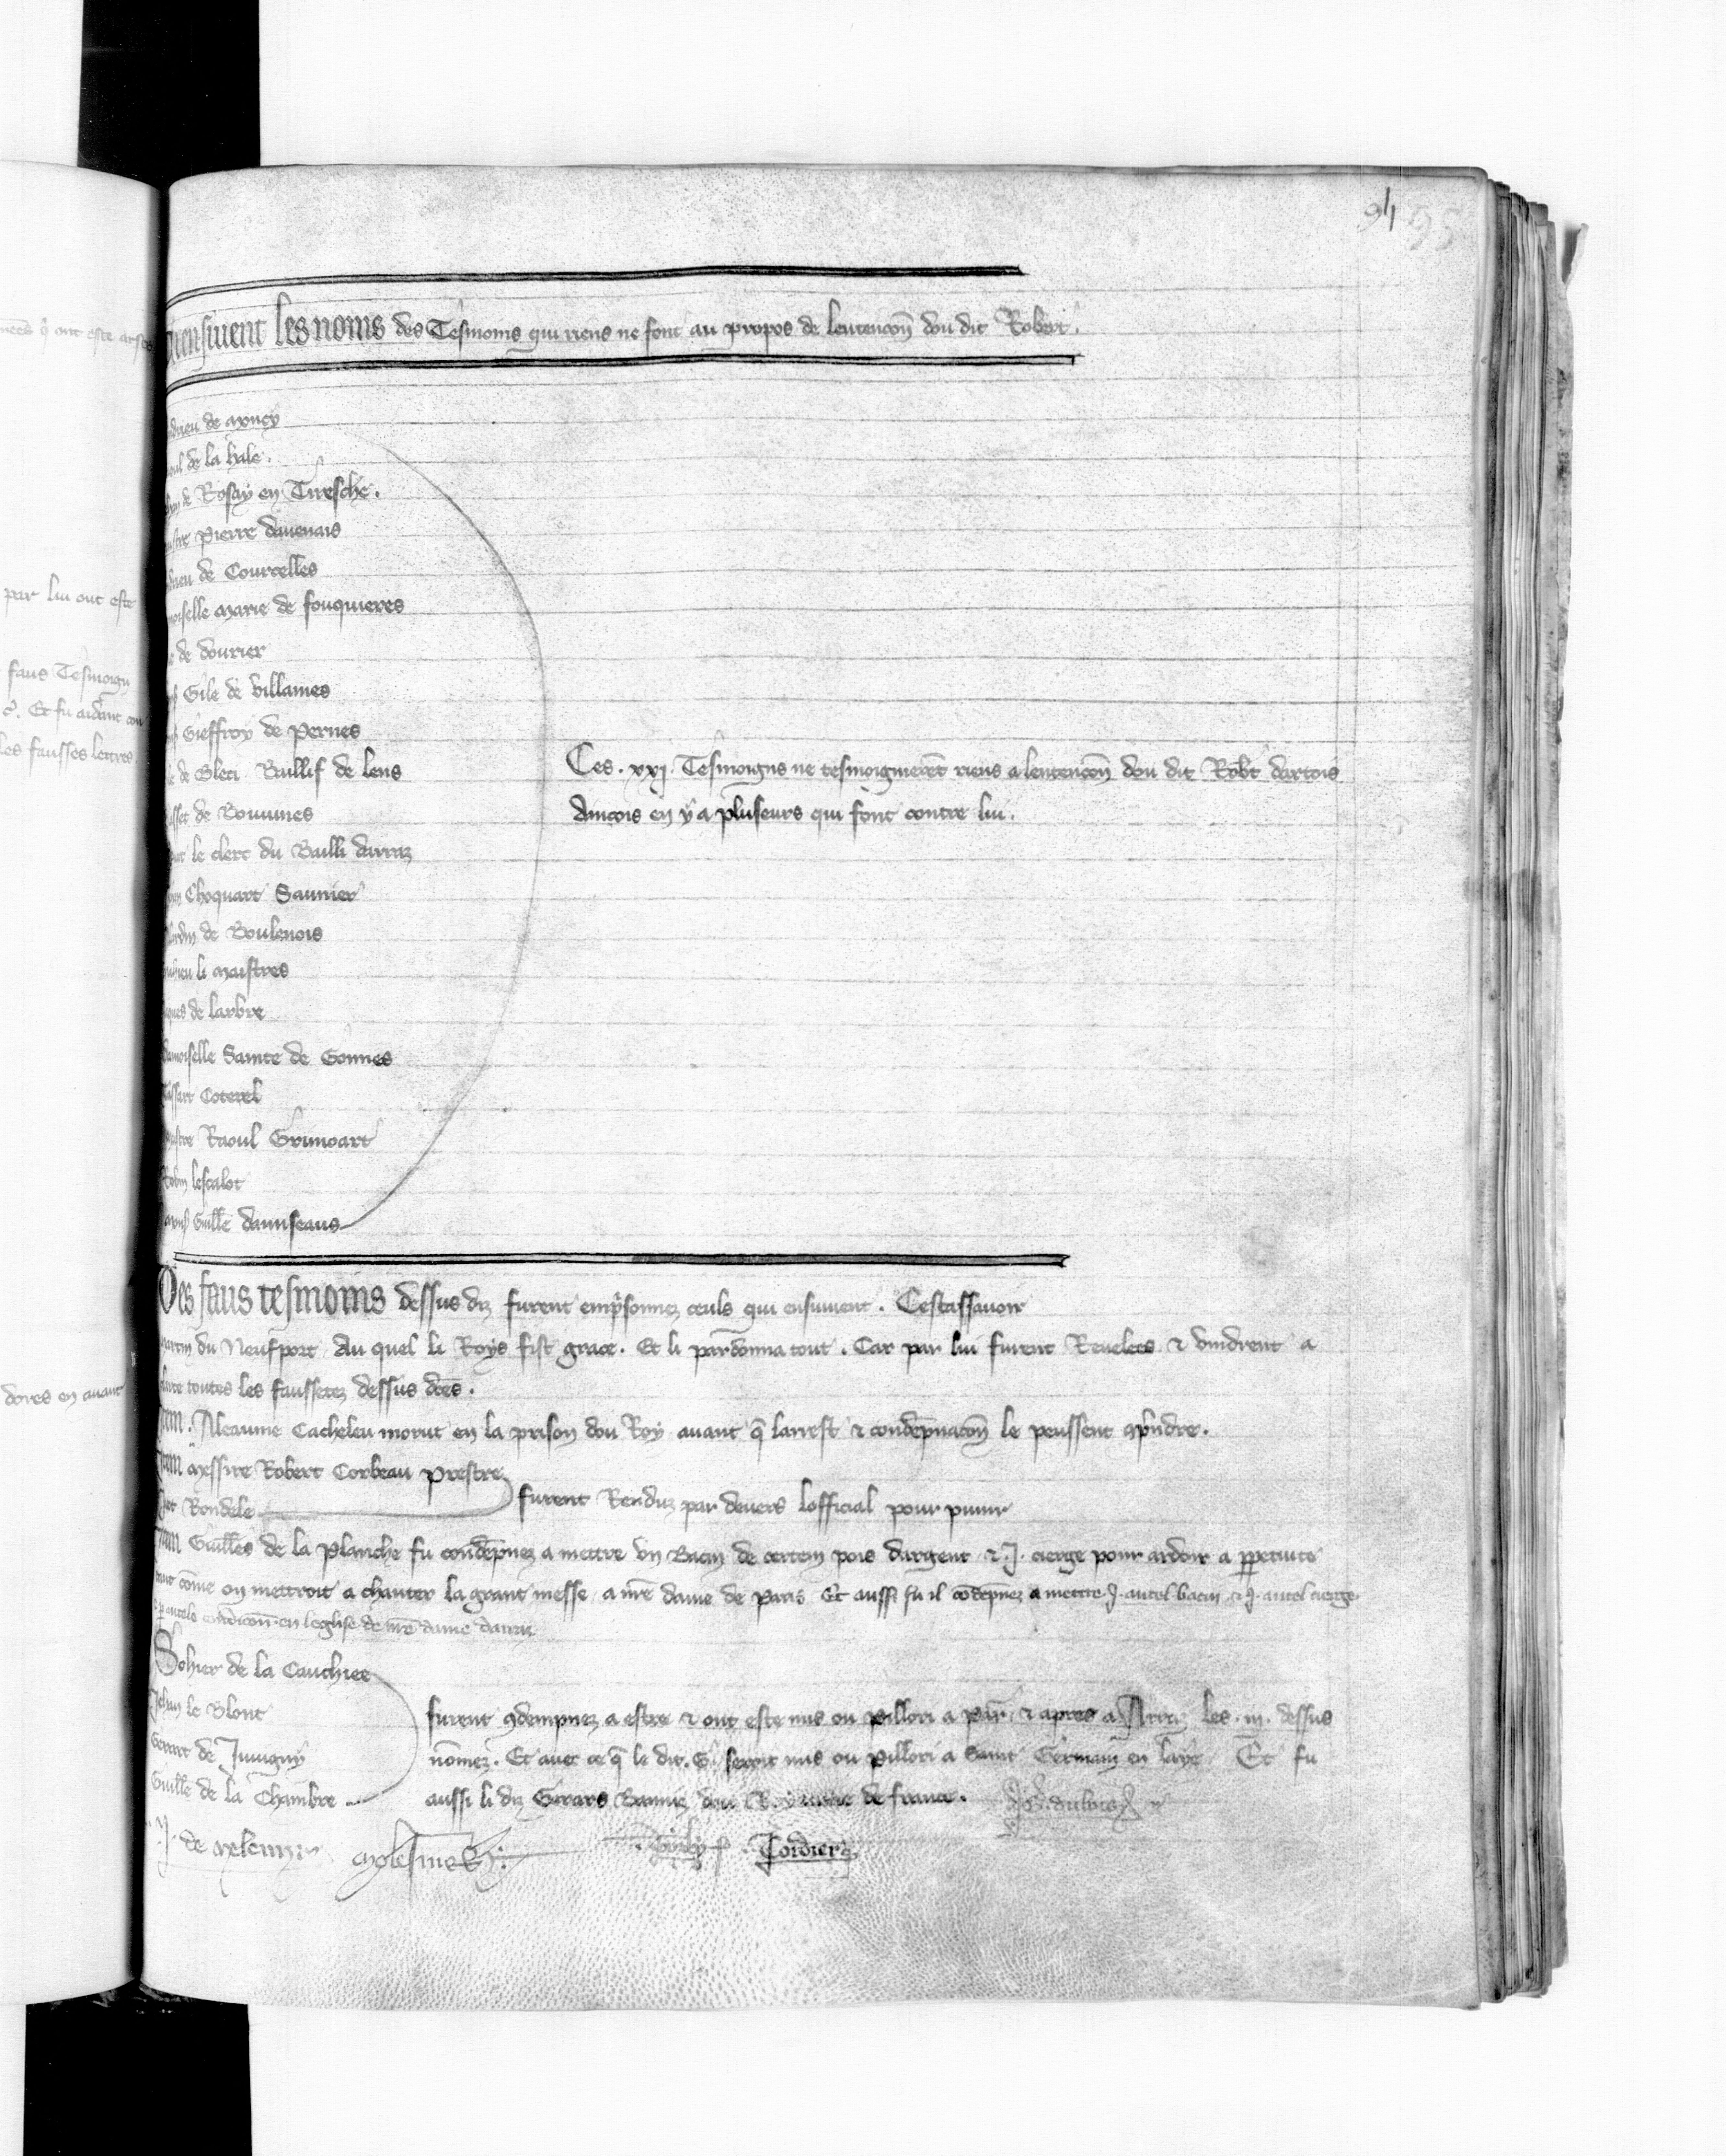 94 95
ensivent les noms des Tesmoins qui riens ne font au propos de lentencon dou dit Robert.
de Moncy
de la hale.
de Rosay en Tiresche.
Pierre davenais
de Courcelles
Marie de fouquieres
de dourier
Gile de villaines
Gieffroy de Pernes
de Bleti Baillif de lens
de Bouvines
le clerc du Bailli darraz
Choquart Saunier
de Boulenois
li maistres
de larbre
damoiselle Sainte de Gonnes
Coterel
Raoul Grimoart
Robin lescalot
Guille daunseaus
Ces .xxj. Tesmoigns ne tesmoignerent riens a lentencon dou dit Robt dartois
Ancois en y a pluseurs qui font contre lui.
Des faus tesmoins dessus diz furent emprisonnez ceuls qui ensuivent. Cestassavoir
du Neufport Au quel li Roys fist grace. Et li pardonna tout. Car par lui furent Revelees & vindrent a
toutes les faussetez dessus dces.
Item. Aleaume Cacheleu morut en la prison dou Roy avant q larrest & condempnacon le peussent comprendre.
Item Messire Robert Corbeau prestre
Rondele
furent Renduz par devers lofficial pour punir
Item Guilles de la Planche fu condempnez a mettre un Bacin de certein pois dargent & .J. cierge pour ardoir a perpetuite
come on mettroit a chanter la grant messe a nre dame de Paris Et aussi fu il condempnez a mettre .J. autel bacin & .J. autel cierge
autele condicon en leglise de nre dame darraz
Sohier de la Cauchiee
Jehan le Blont
Gerart de Juvigny
Guille de la Chambre
furent condempnez a estre & ont este mis ou Pillori a Par & apres a Arraz les .iij. dessus
nomez. Et avec ce q le dit .G. seroit mis ou Pillori a Saint Germain en laye Et fu
aussi li diz Gerars Banniz dou Royaume de france.
J de
Cordier
par lui ont este
faus Tesmoign
Et fu aidant
les fausses lettres
dores en avant